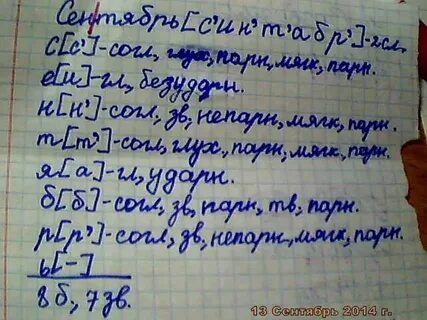 Сентябрь [с'ин'т'абр']-2сл.
с[с']-согл, глух, парн, мягк, парн.
е[и]-гл, безударн.
н[н']-согл, зв, непарн, мягк, парн.
т[т']-согл, глух, парн, мягк, парн.
я[а]-гл, ударн.
б[б]-согл, зв, парн, тв, парн.
р[р']-согл, зв, непарн, мягк, парн.
ь[-]
8б, 7зв.
13 Сентябрь 2014 г.